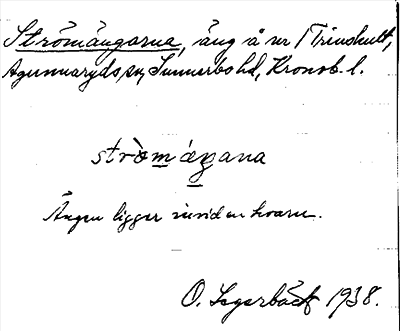 Strömängarna, äng å ser Trinshult,
Agunnaryds sn, Sunnerbo hd, Kronob. l.
strömäŋana
Ängen ligger invid en kvarn.
O. Segerbäck 1938.